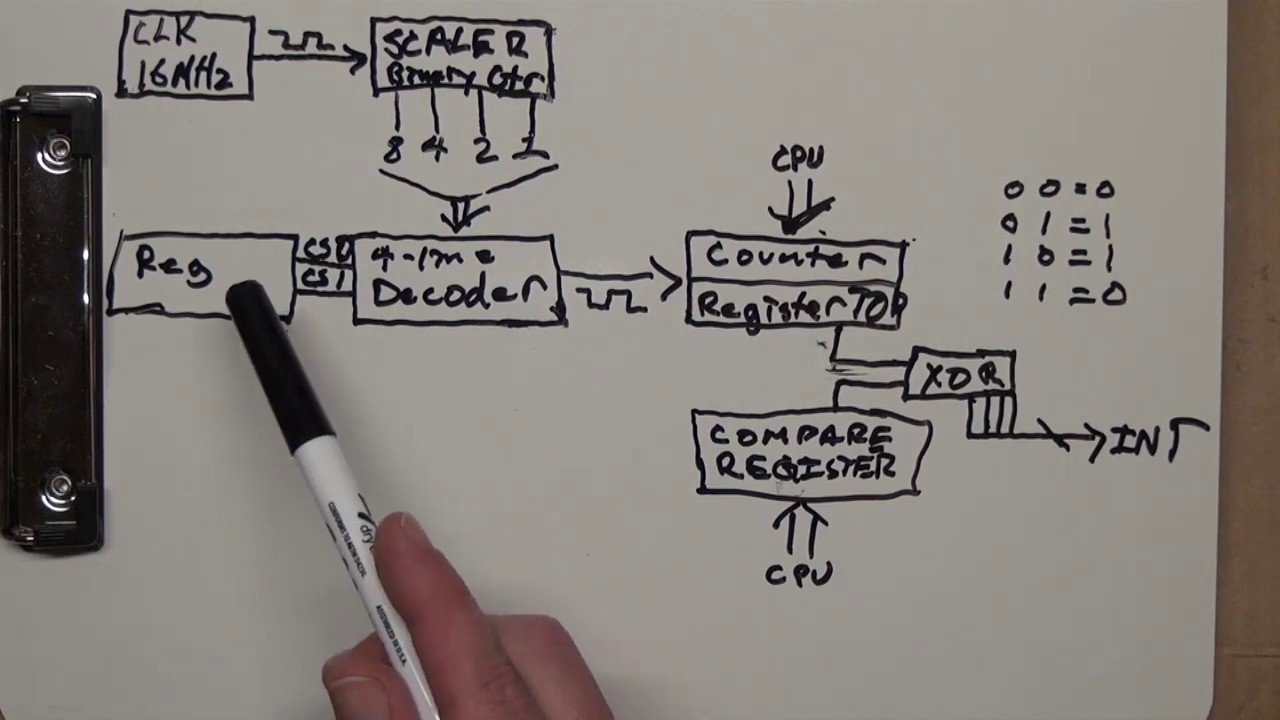 CLK
16MHz
SCALER
Binary Ctr
8 4 2 1
CPU
Reg
CS0
CS1
4-line
Decoder
Counter
Register TOP
0 0 = 0
0 1 = 1
1 0 = 1
1 1 = 0
XOR
COMPARE
REGISTER
INT
CPU
dry
CONFORMS TO ASTM D4236
ASSEMBLED IN U.S.A.